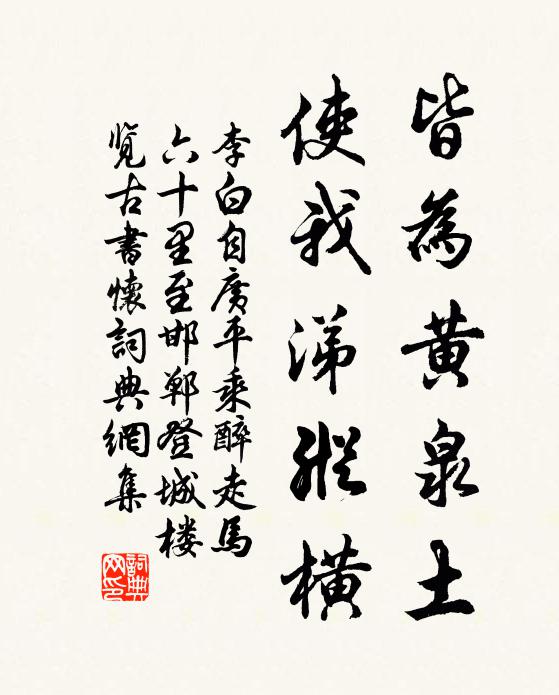 皆為黃泉土
使我涕縱橫
李白自廣平乘醉走馬
六十里至邯鄲登城楼
覽古書懷詞典網集
詞典
网印